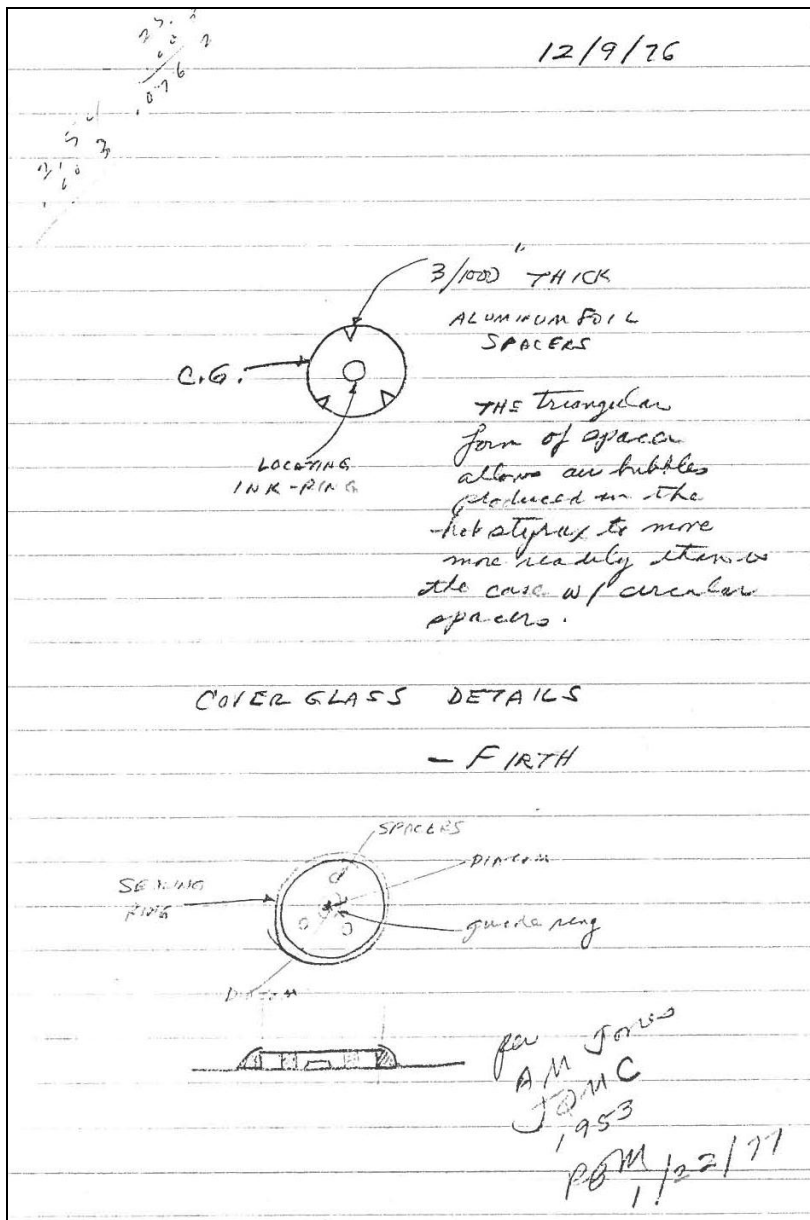 25.4
.003
.0762
2.54
.003
12/9/76
3/1000" THICK
ALUMINUM FOIL
SPACERS
C.G.
LOCATING
INK-RING
THE triangular
form of spacer
allows air bubbles
produced in the
hot styrax to more
more readily than is
the case w/ circular
spacers.
COVER GLASS DETAILS
- FIRTH
SPACERS
DIATOM
SEALING
RING
guide ring
DIATOM
per
A M Jones
JQMC
1953
PBM 1/22/77